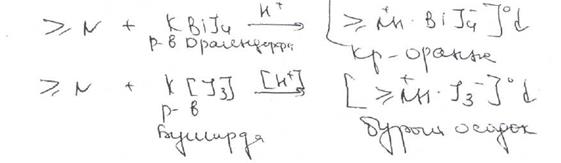 ≥N + K BiJ4 H+→ [≥N+H · BiJ4-]°↓
р-в Драгендорфа кр-оранж
≥N + K[J3] [H+]→ [≥N+H · J3-]°↓
р-в
Бушарда бурый осадок